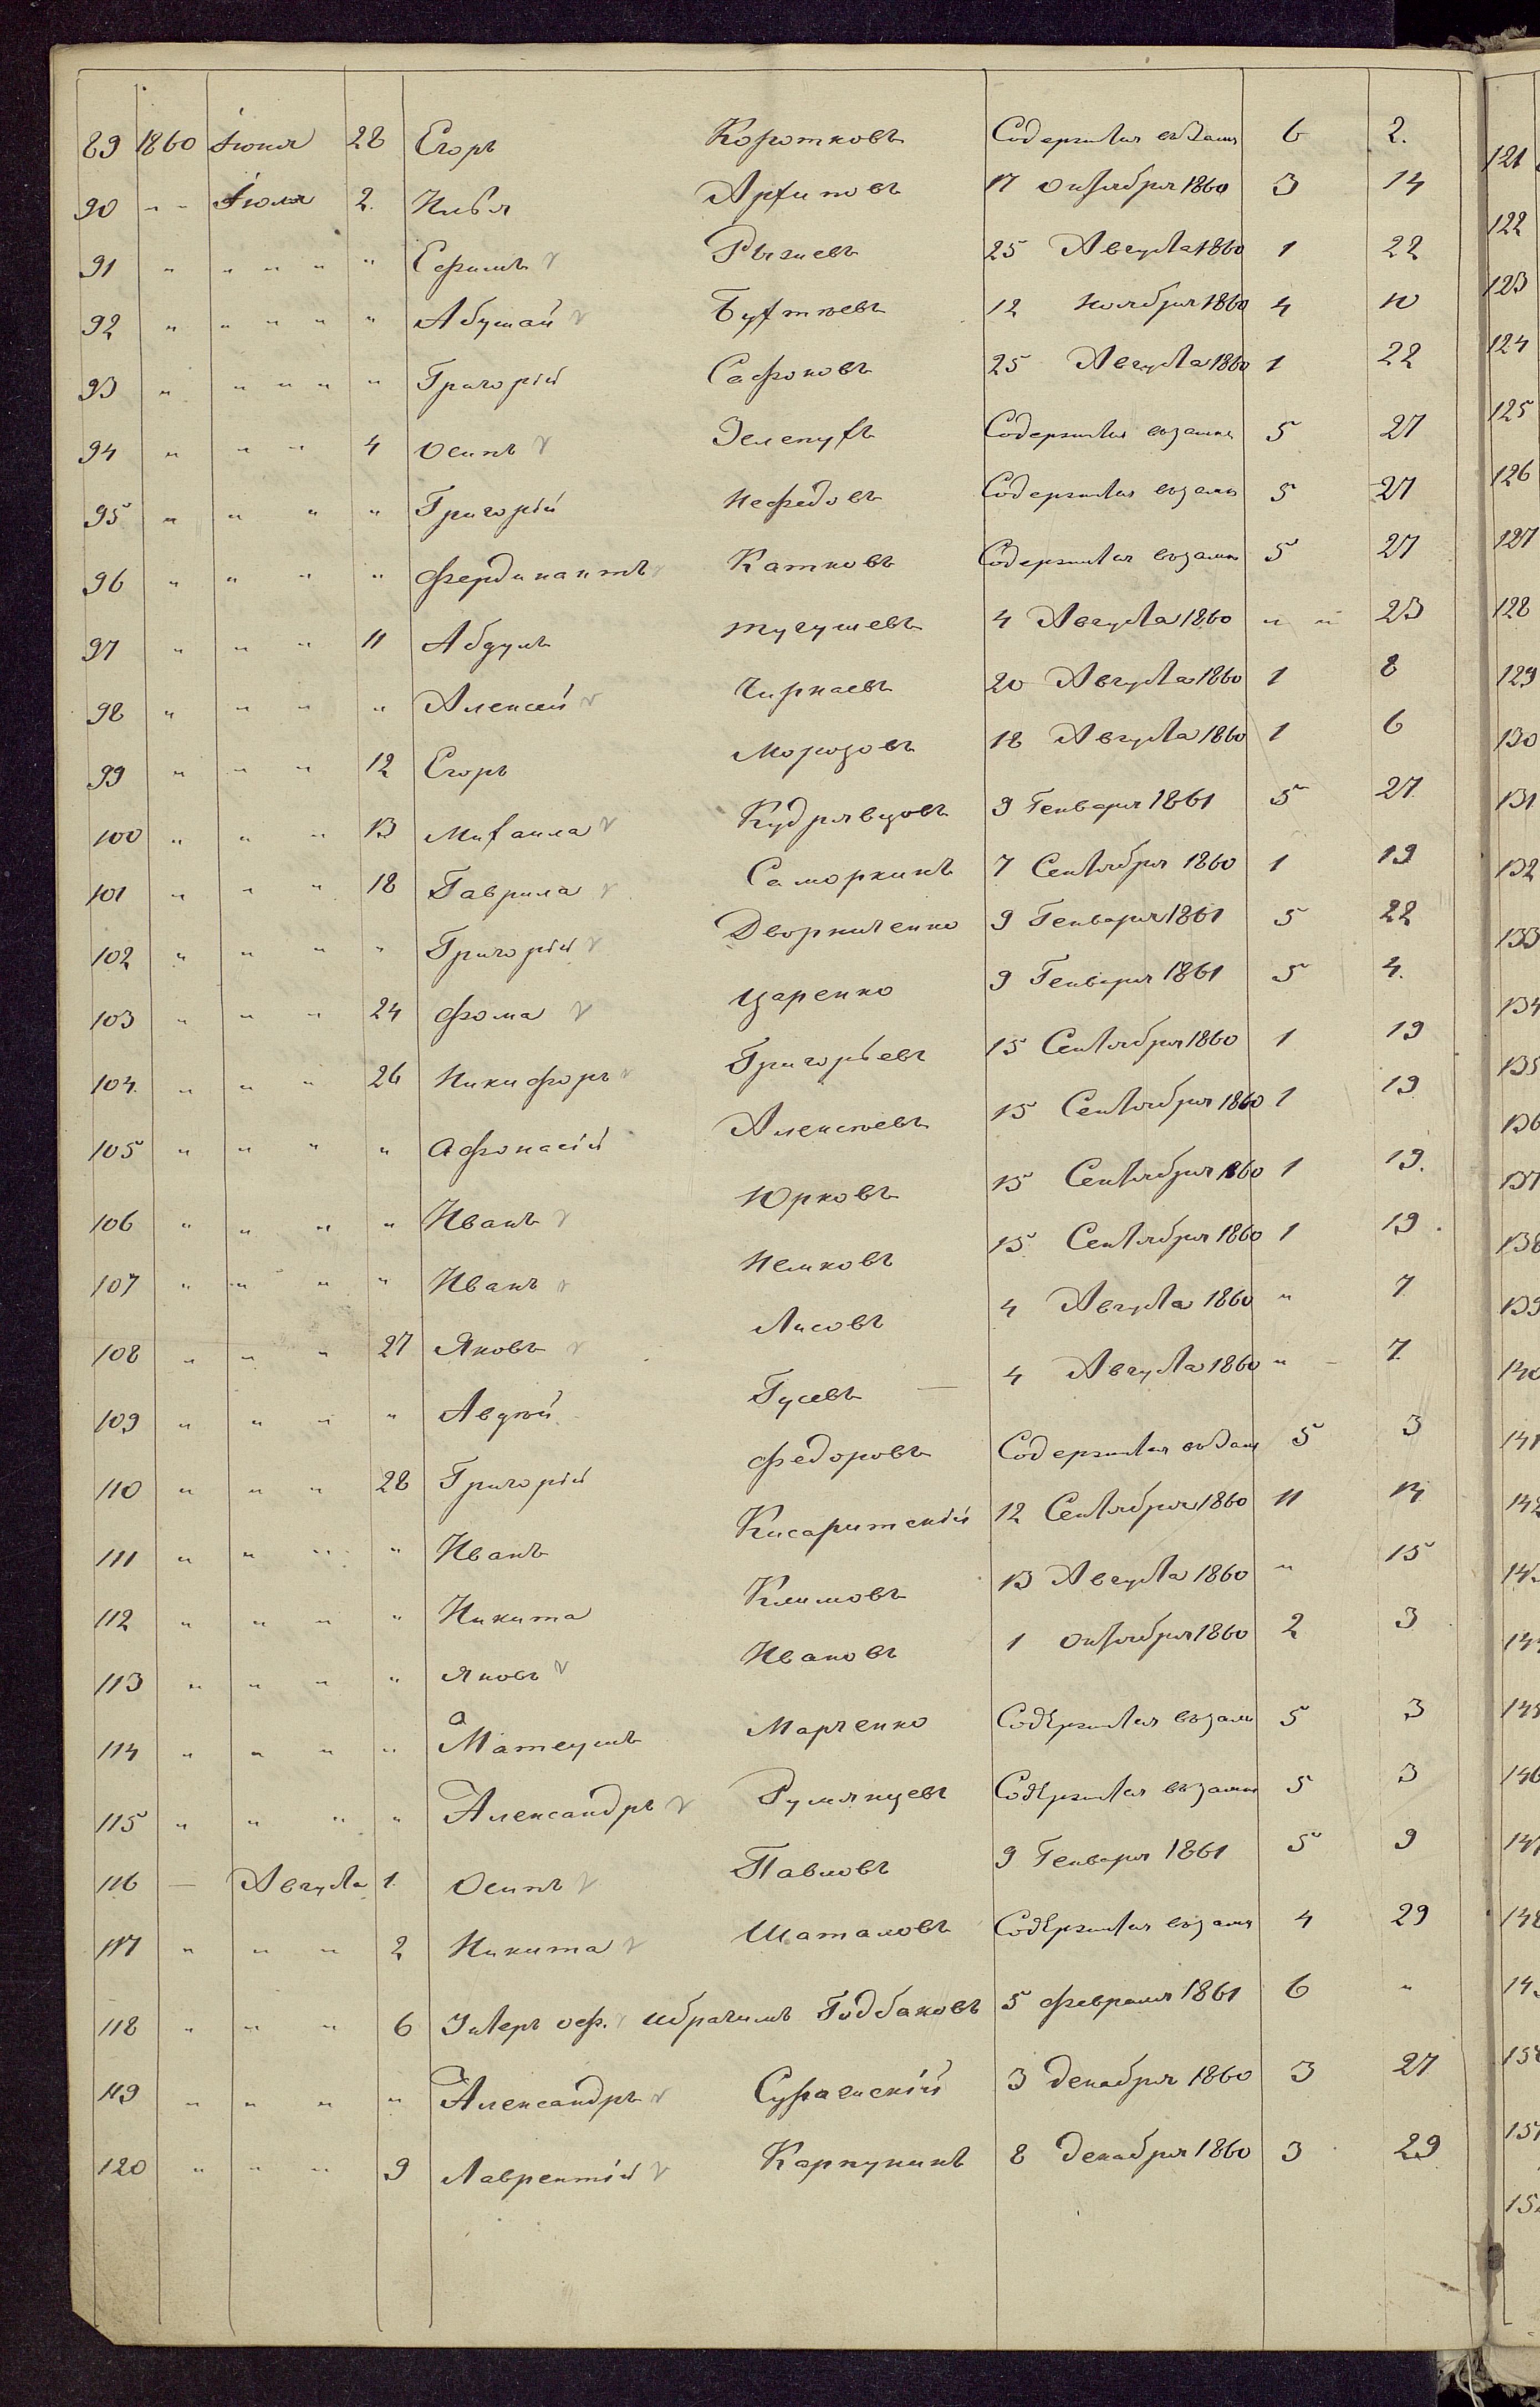 89 1860 Іюня 28 Егоръ Коротковъ Содержится въ зам 6 2.
90 " " Іюля 2. Илья Архиповъ 17 Октября 1860 3 14
91 " " " " " Ефимъ Рыжиевъ 25 Августа 1860 1 22
92 " " " " " Абушай 12 Ноября 1860 4 10
93 " " " " " Григорій Сафоновъ 25 Августа 1860 1 22
94 " " " 4 Осипъ Зелепухъ Содержится въ замк 5 27
95 " " " " Григорій Нефедовъ Содержится въ замк 5 27
96 " " " " Фердинантъ Катковъ Содержится въ замк 5 27
97 " " " 11 Абдулъ Тугушевъ 4 Августа 1860 " " 23
98 " " " " Алексей Чиркаевъ 20 Августа 1860 1 8
99 " " " 12 Егоръ Морозовъ 18 Августа 1860 1 6
100 " " " 13 Михаила Кудрявцовъ 9 Генваря 1861 5 27
101 " " " 18 Гаврила Саморкинъ 7 Сентября 1860 1 19
102 " " " " Григорій Дворниченко 9 Генваря 1861 5 22
103 " " " 24 Фома Царенко 9 Генваря 1861 5 4.
104 " " " 26 Никифоръ Григорьевъ 15 Сентября 1860 1 19
105 " " " " Афонасій Алексѣевъ 15 Сентября 1860 1 19
106 " " " " Иванъ Юрковъ 15 Сентября 1860 1 19.
107 " " " " Иванъ Немковъ 15 Сентября 1860 1 19.
108 " " " 27 Яковъ Лисовъ 4 Августа 1860 " 7
109 " " " " Авдѣй Гусевъ 4 Августа 1860 " 7
110 " " " 28 Григорій Федоровъ Содержится въ зам 5 3
111 " " " " Иванъ 12 Сентября 1860 11 14
112 " " " " Никита Климовъ 13 Августа 1860 " 15
113 " " " " Яковъ Ивановъ 1 Октября 1860 2 3
114 " " " " Матеушъ Марченко Содержится въ зам 5 3
115 " " " " Александръ Румянцевъ Содержится въ замк 5 3
116 — Августа 1. Осипъ Павловъ 9 Генваря 1861 5 9
117 " " " 2 Никита Шаталовъ Содержится въ замк 4 29
118 " " " 6 Унтеръ оф. Ибрагимъ 5 Февраля 1861 6 "
119 " " " " Александръ 3 Декабря 1860 3 27
120 " " " 9 Лаврентій Карпунинъ 8 Декабря 1860 3 29
121
122
123
124
125
126
127
128
129
130
131
132
133
134
135
136
137
138
139
140
141
142